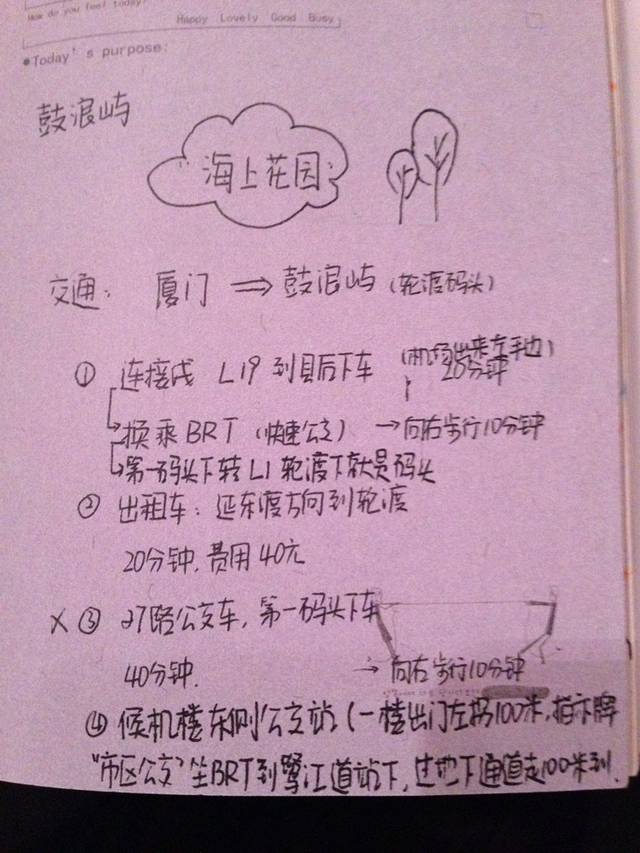 How do you feel today?
Happy Lovely Good Busy
●Today's purpose:
鼓浪屿
"海上花园"
交通: 厦门 ⇒ 鼓浪屿 (轮渡码头)
① 连接线 L19 到县后下车 (机场出来左手边) 20分钟
换乘BRT (快速公交) →向右步行10分钟
第一码头下转L1 轮渡下就是码头
② 出租车: 延东渡方向到轮渡
20分钟, 费用40元
X ③ 27路公交车, 第一码头下车
40分钟. → 向右步行10分钟
④ 候机楼东侧公交站 (一楼出门左拐100米, 指示牌
"市区公交" 坐BRT到鹭江道站下, 过地下通道走100米到.